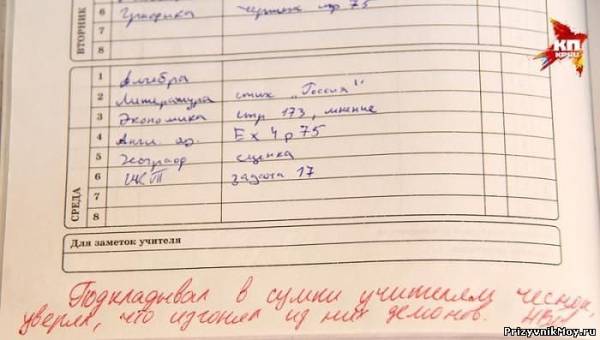 ВТОРНИК
6 Графика чертеж стр 75
7
8
КП
КРЫМ
СРЕДА
1 Алгебра
2 Литература стих "Россия"
3 Экономика стр 173, мнение
4 Англ. яз. Ex 4 p 75
5 Географ сценка
6 ИКТ задача 17
7
8
Для заметок учителя
Подкладывал в сумки учителям чеснок,
уверял, что изгонял из них демонов.
PrizyvnikMoy.ru